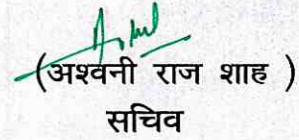 (अश्वनी राज शाह )
सचिव